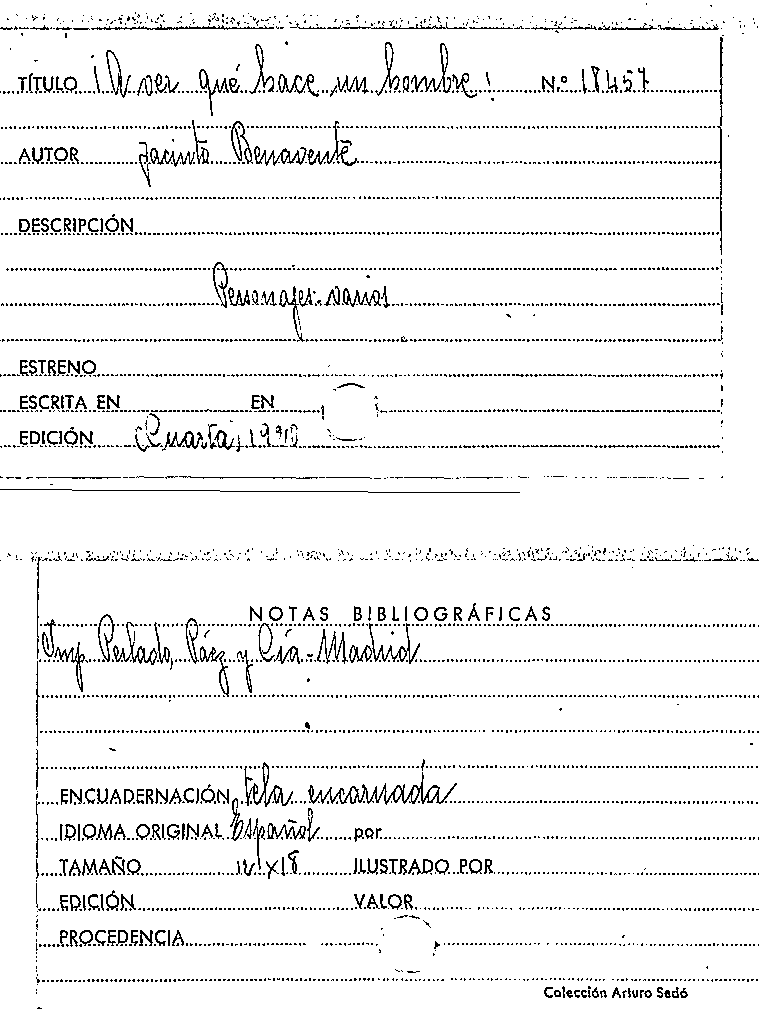 TÍTULO ¡A ver qué hace un hombre! N.º 18457
AUTOR Jacinto Benavente
DESCRIPCIÓN
Personajes: varios
ESTRENO
ESCRITA EN EN
EDICIÓN (Cuarta)
NOTAS BIBLIOGRÁFICAS
Imp. Perlado, Páez y Cía - Madrid
ENCUADERNACIÓN tela encarnada
IDIOMA ORIGINAL Español por
TAMAÑO 12x18 ILUSTRADO POR
EDICIÓN VALOR
PROCEDENCIA
Colección Arturo Sedó